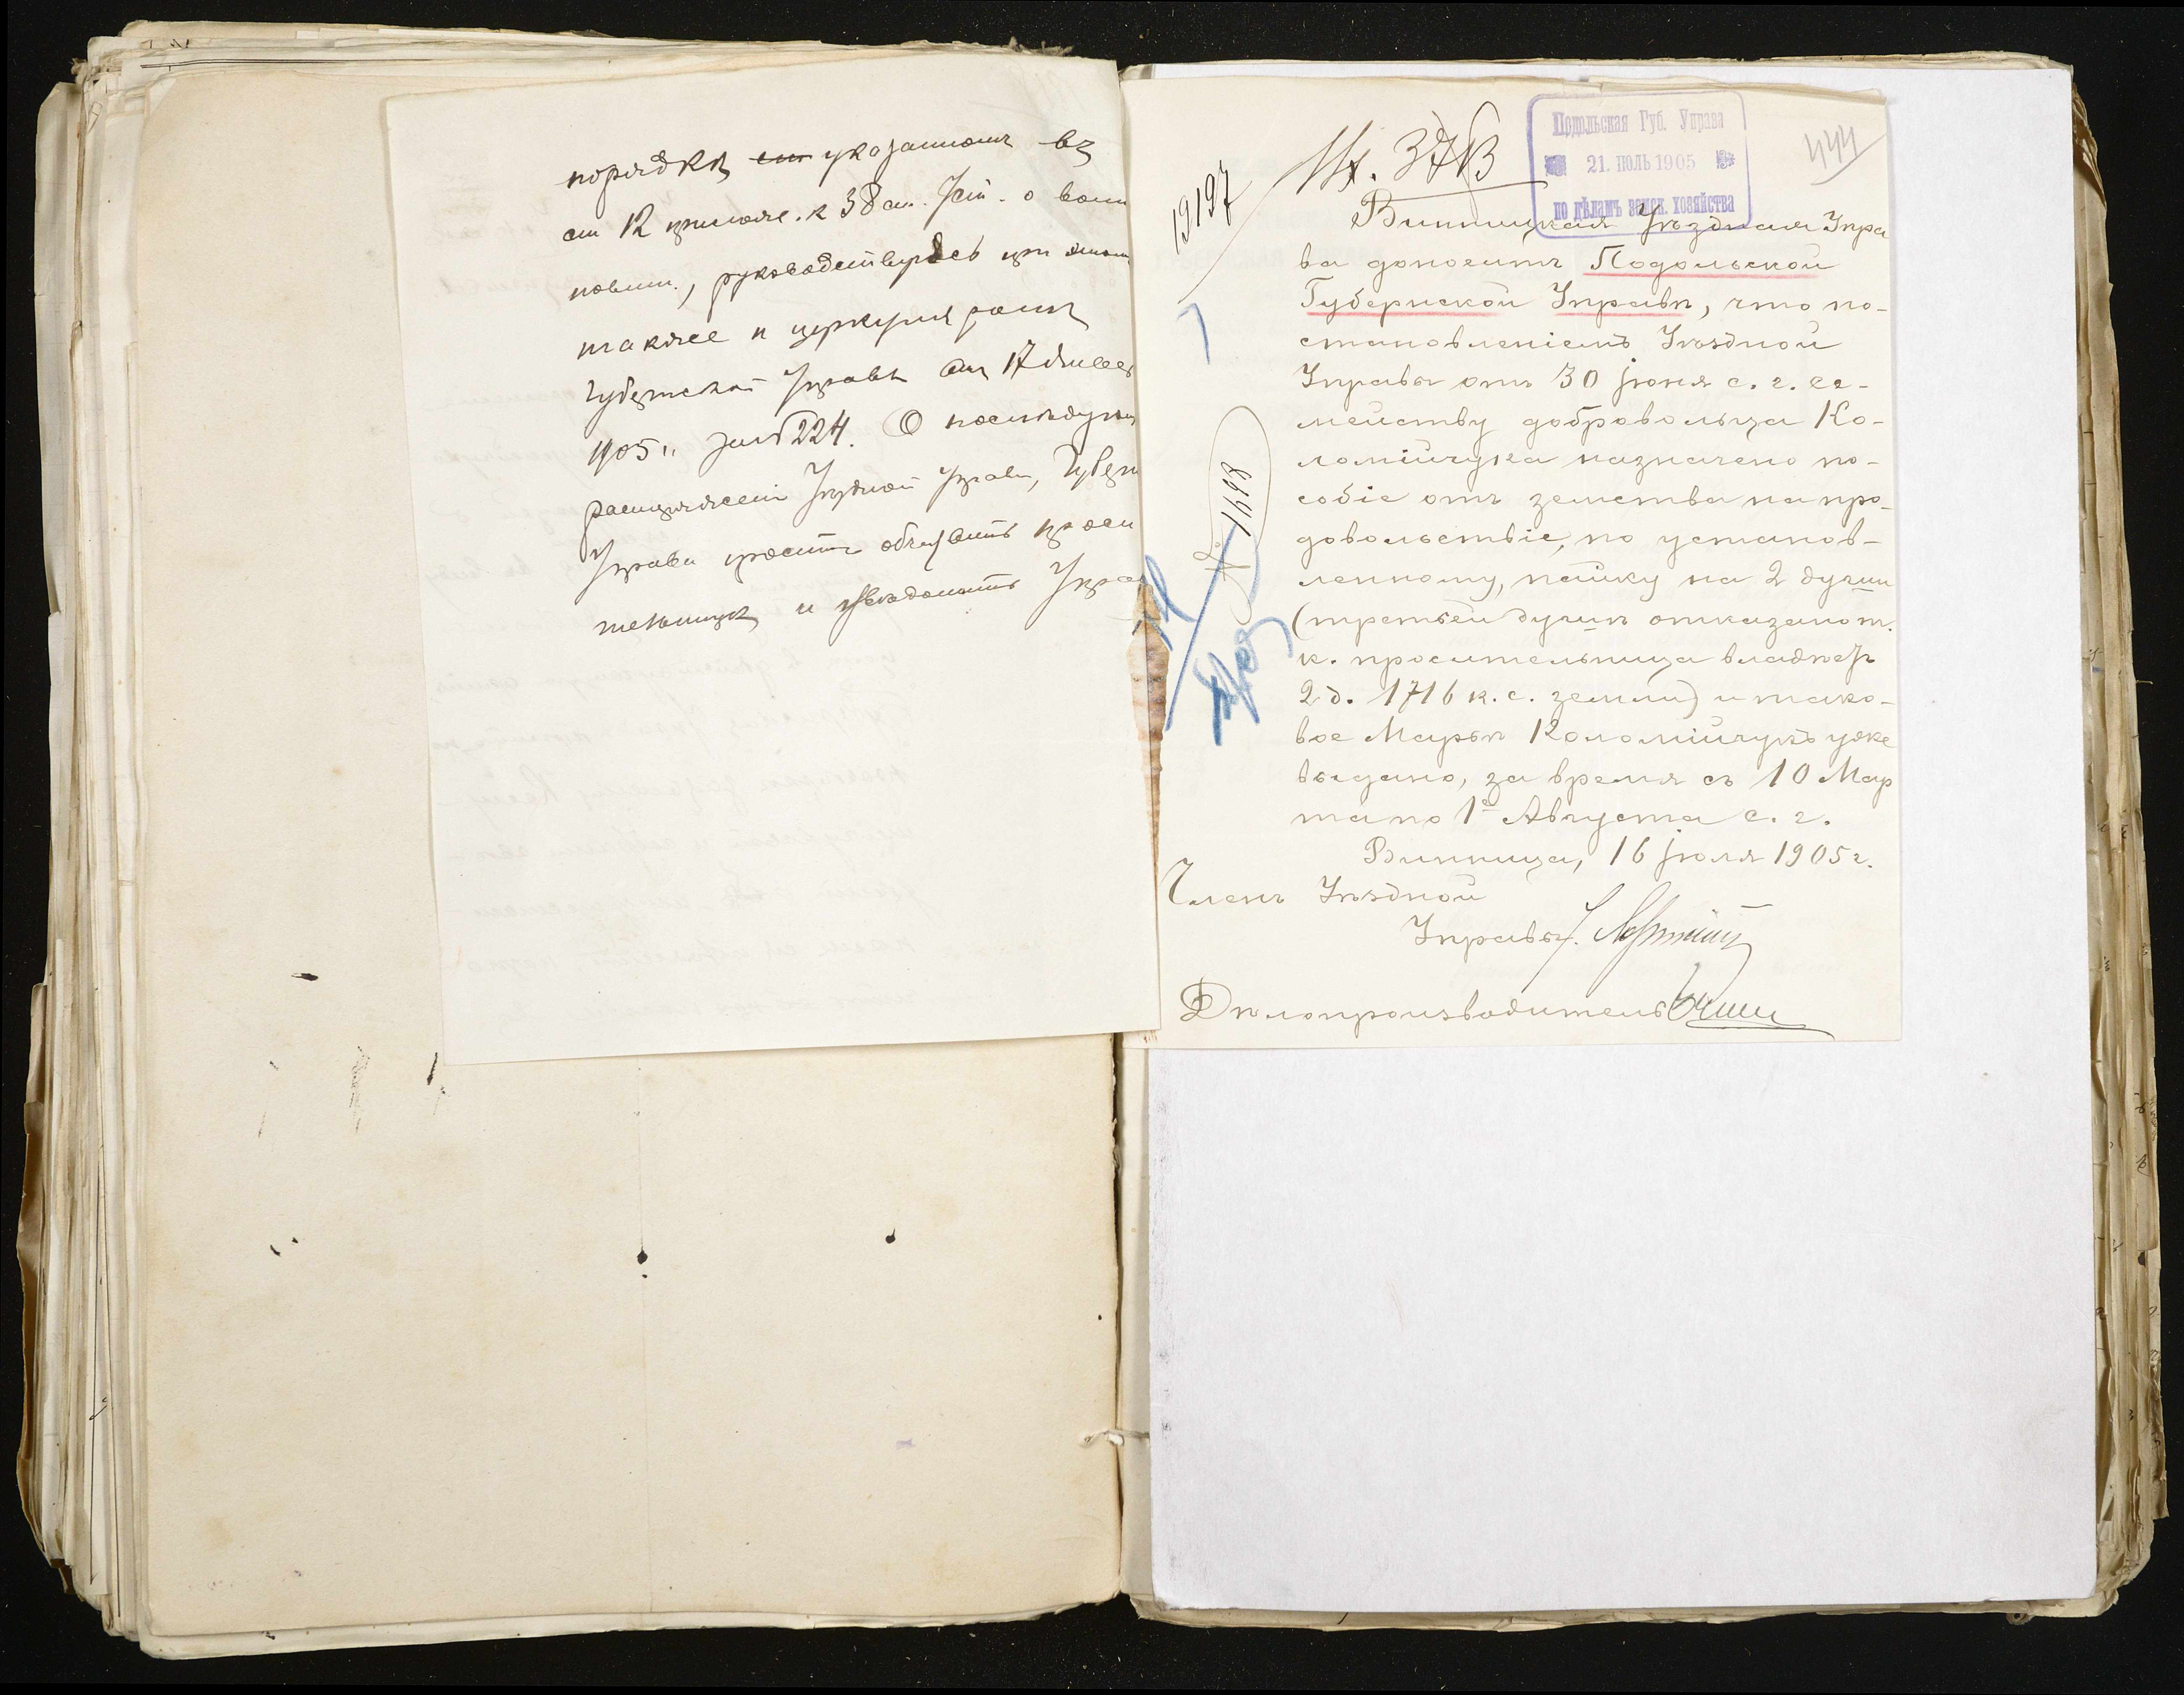 порядкѣ указанномъ въ
ст 12 прилож. к 38 ст. Уст. о воин
повин., руководствуясь при этом
также и циркуляромъ
Губернской Управы отъ 17
1905 г. за № 224. О послѣдую
распоряженіи Уѣздной Управы, Губерн
Управа проситъ объявить проси
тельницѣ и увѣдомить Упра
19197
Подольская Губ. Управа
21. ІЮЛЬ 1905
по дѣламъ земск. хозяйства
444
Винницкая Уѣздная Упра
ва доноситъ Подольской
Губернской Управѣ, что по-
становленіемъ Уѣздной
Управы отъ 30 Іюня с. г. се-
мейству добровольца Ко-
ломійчука назначено по-
собіе отъ земства на про-
довольствіе, по установ-
ленному, пайку на 2 души
(третьей душѣ отказано т.
к. просительница владѣетъ
2 д. 1716 к. с. земли) и тако-
вое Марьѣ Коломійчукъ уже
выдано, за время съ 10 Мар
та по 1е Августа с. г.
Винница, 16 Іюля 1905 г.
Членъ Уѣздной
Управы
Дѣлопроизводитель